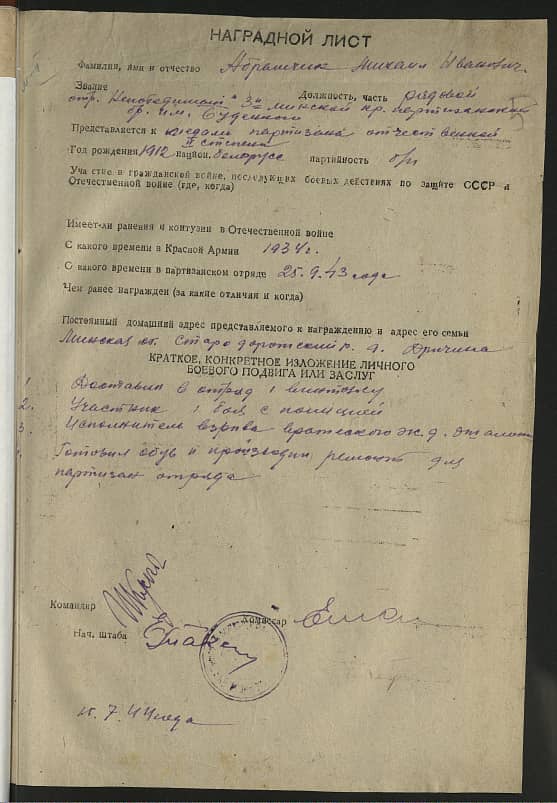 НАГРАДНОЙ ЛИСТ
Фамилия, имя и отчество Абрамчик Михаил Иванович.
Звание Должность, часть рядовой
отр. Непобедимый 3й Минской бр. партизанский
бр. им. Буденного
Представляется к медали партизана отечественной
II степени
Год рождения 1912 национ. белорус партийность б/п
Участие в гражданской войне, последующих боевых действиях по защите СССР и
Отечественной войне (где, когда)
Имеет-ли ранения и контузии в Отечественной войне
С какого времени в Красной Армии 1934 г.
С какого времени в партизанском отряде 25.9.43 года
Чем ранее награжден (за какие отличия и когда)
Постоянный домашний адрес представляемого к награждению и адрес его семьи
Минская об. Стародорожский р. д.
КРАТКОЕ, КОНКРЕТНОЕ ИЗЛОЖЕНИЕ ЛИЧНОГО
БОЕВОГО ПОДВИГА ИЛИ ЗАСЛУГ
1. Доставил в отряд 1 винтовку
2. Участник 1 боя с полицией
3. Исполнитель взрыва вражеского ж.д. эшалона
Готовил обувь и производил ремонт для
партизан отряда
Командир
Комиссар
Нач. штаба
7. 44 года